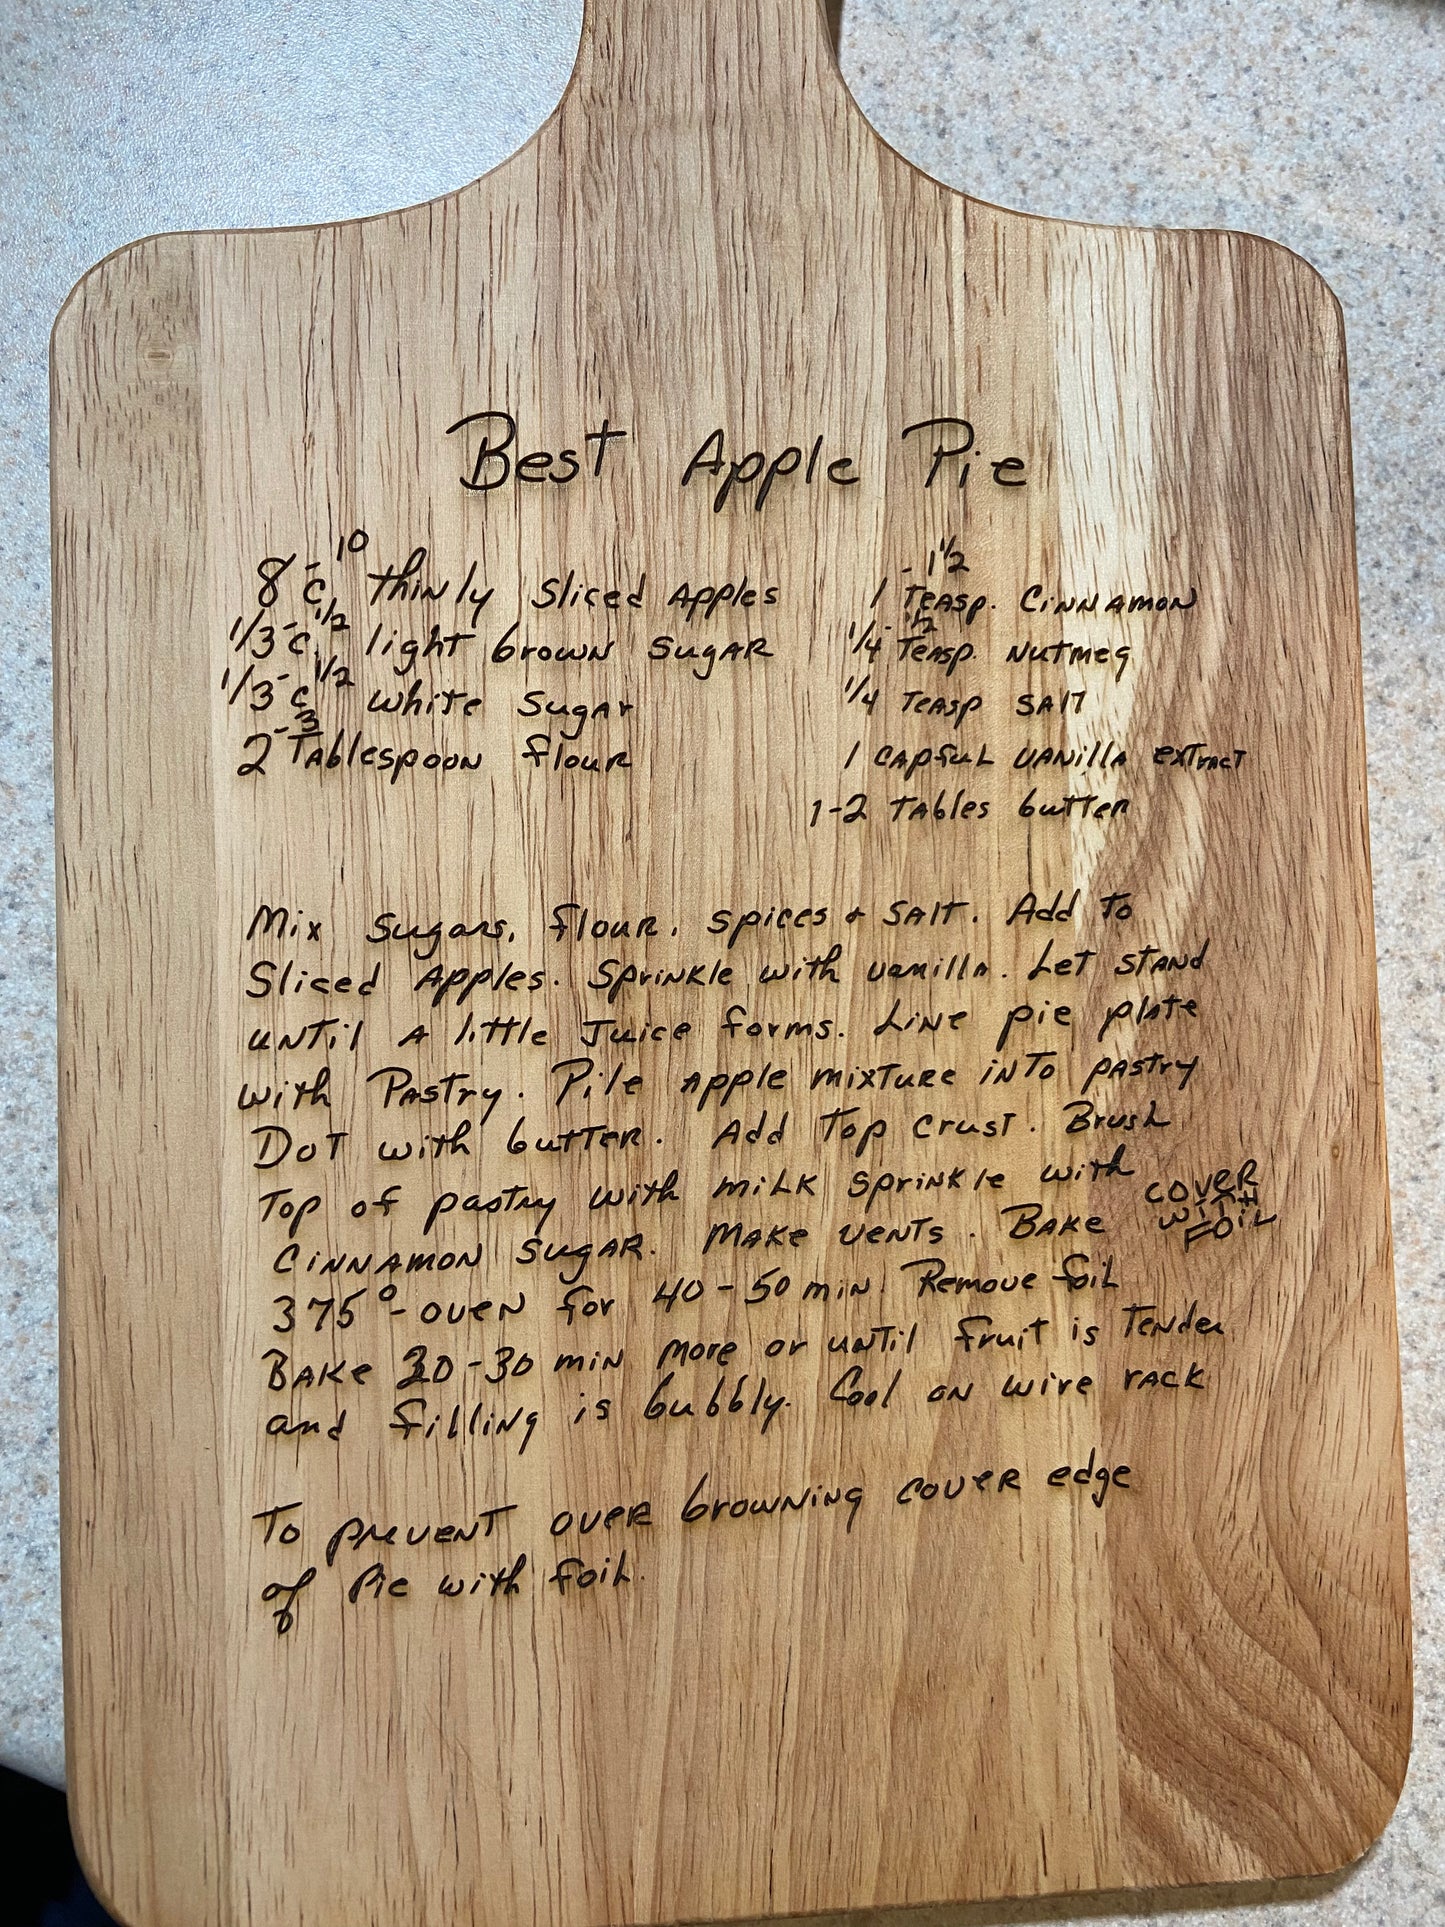 Best Apple Pie
8-10 c. thinly sliced apples
1/3-1/2 c. light brown sugar
1/3-1/2 c white sugar
2-3 Tablespoon flour
1-1 1/2 Teasp. Cinnamon
1/4-1/2 Teasp. nutmeg
1/4 Teasp salt
1 capful vanilla extract
1-2 Tables butter
Mix sugars, flour, spices + salt. Add to
sliced apples. Sprinkle with vanilla. Let stand
until a little juice forms. Line pie plate
with Pastry. Pile apple mixture into pastry
Dot with butter. Add top crust. Brush
top of pastry with milk sprinkle with
cinnamon sugar. Make vents. Bake cover with foil
375°-oven for 40-50 min. Remove foil
Bake 20-30 min more or until fruit is tender
and filling is bubbly. Cool on wire rack
To prevent over browning cover edge
of Pie with foil.